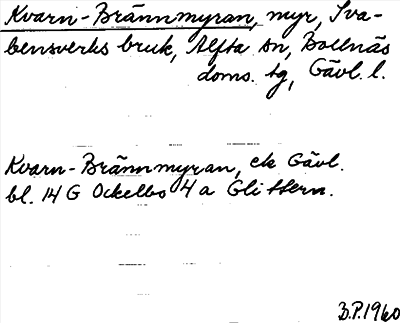 Kvarn-Brännmyran, myr, Sva-
bensverks bruk, Alfta sn, Bollnäs
doms. tg, Gävl. l.
Kvarn-Brännmyran, ek Gävl.
bl. 14 G Ockelbo 4 a Glittern.
B.P. 1960